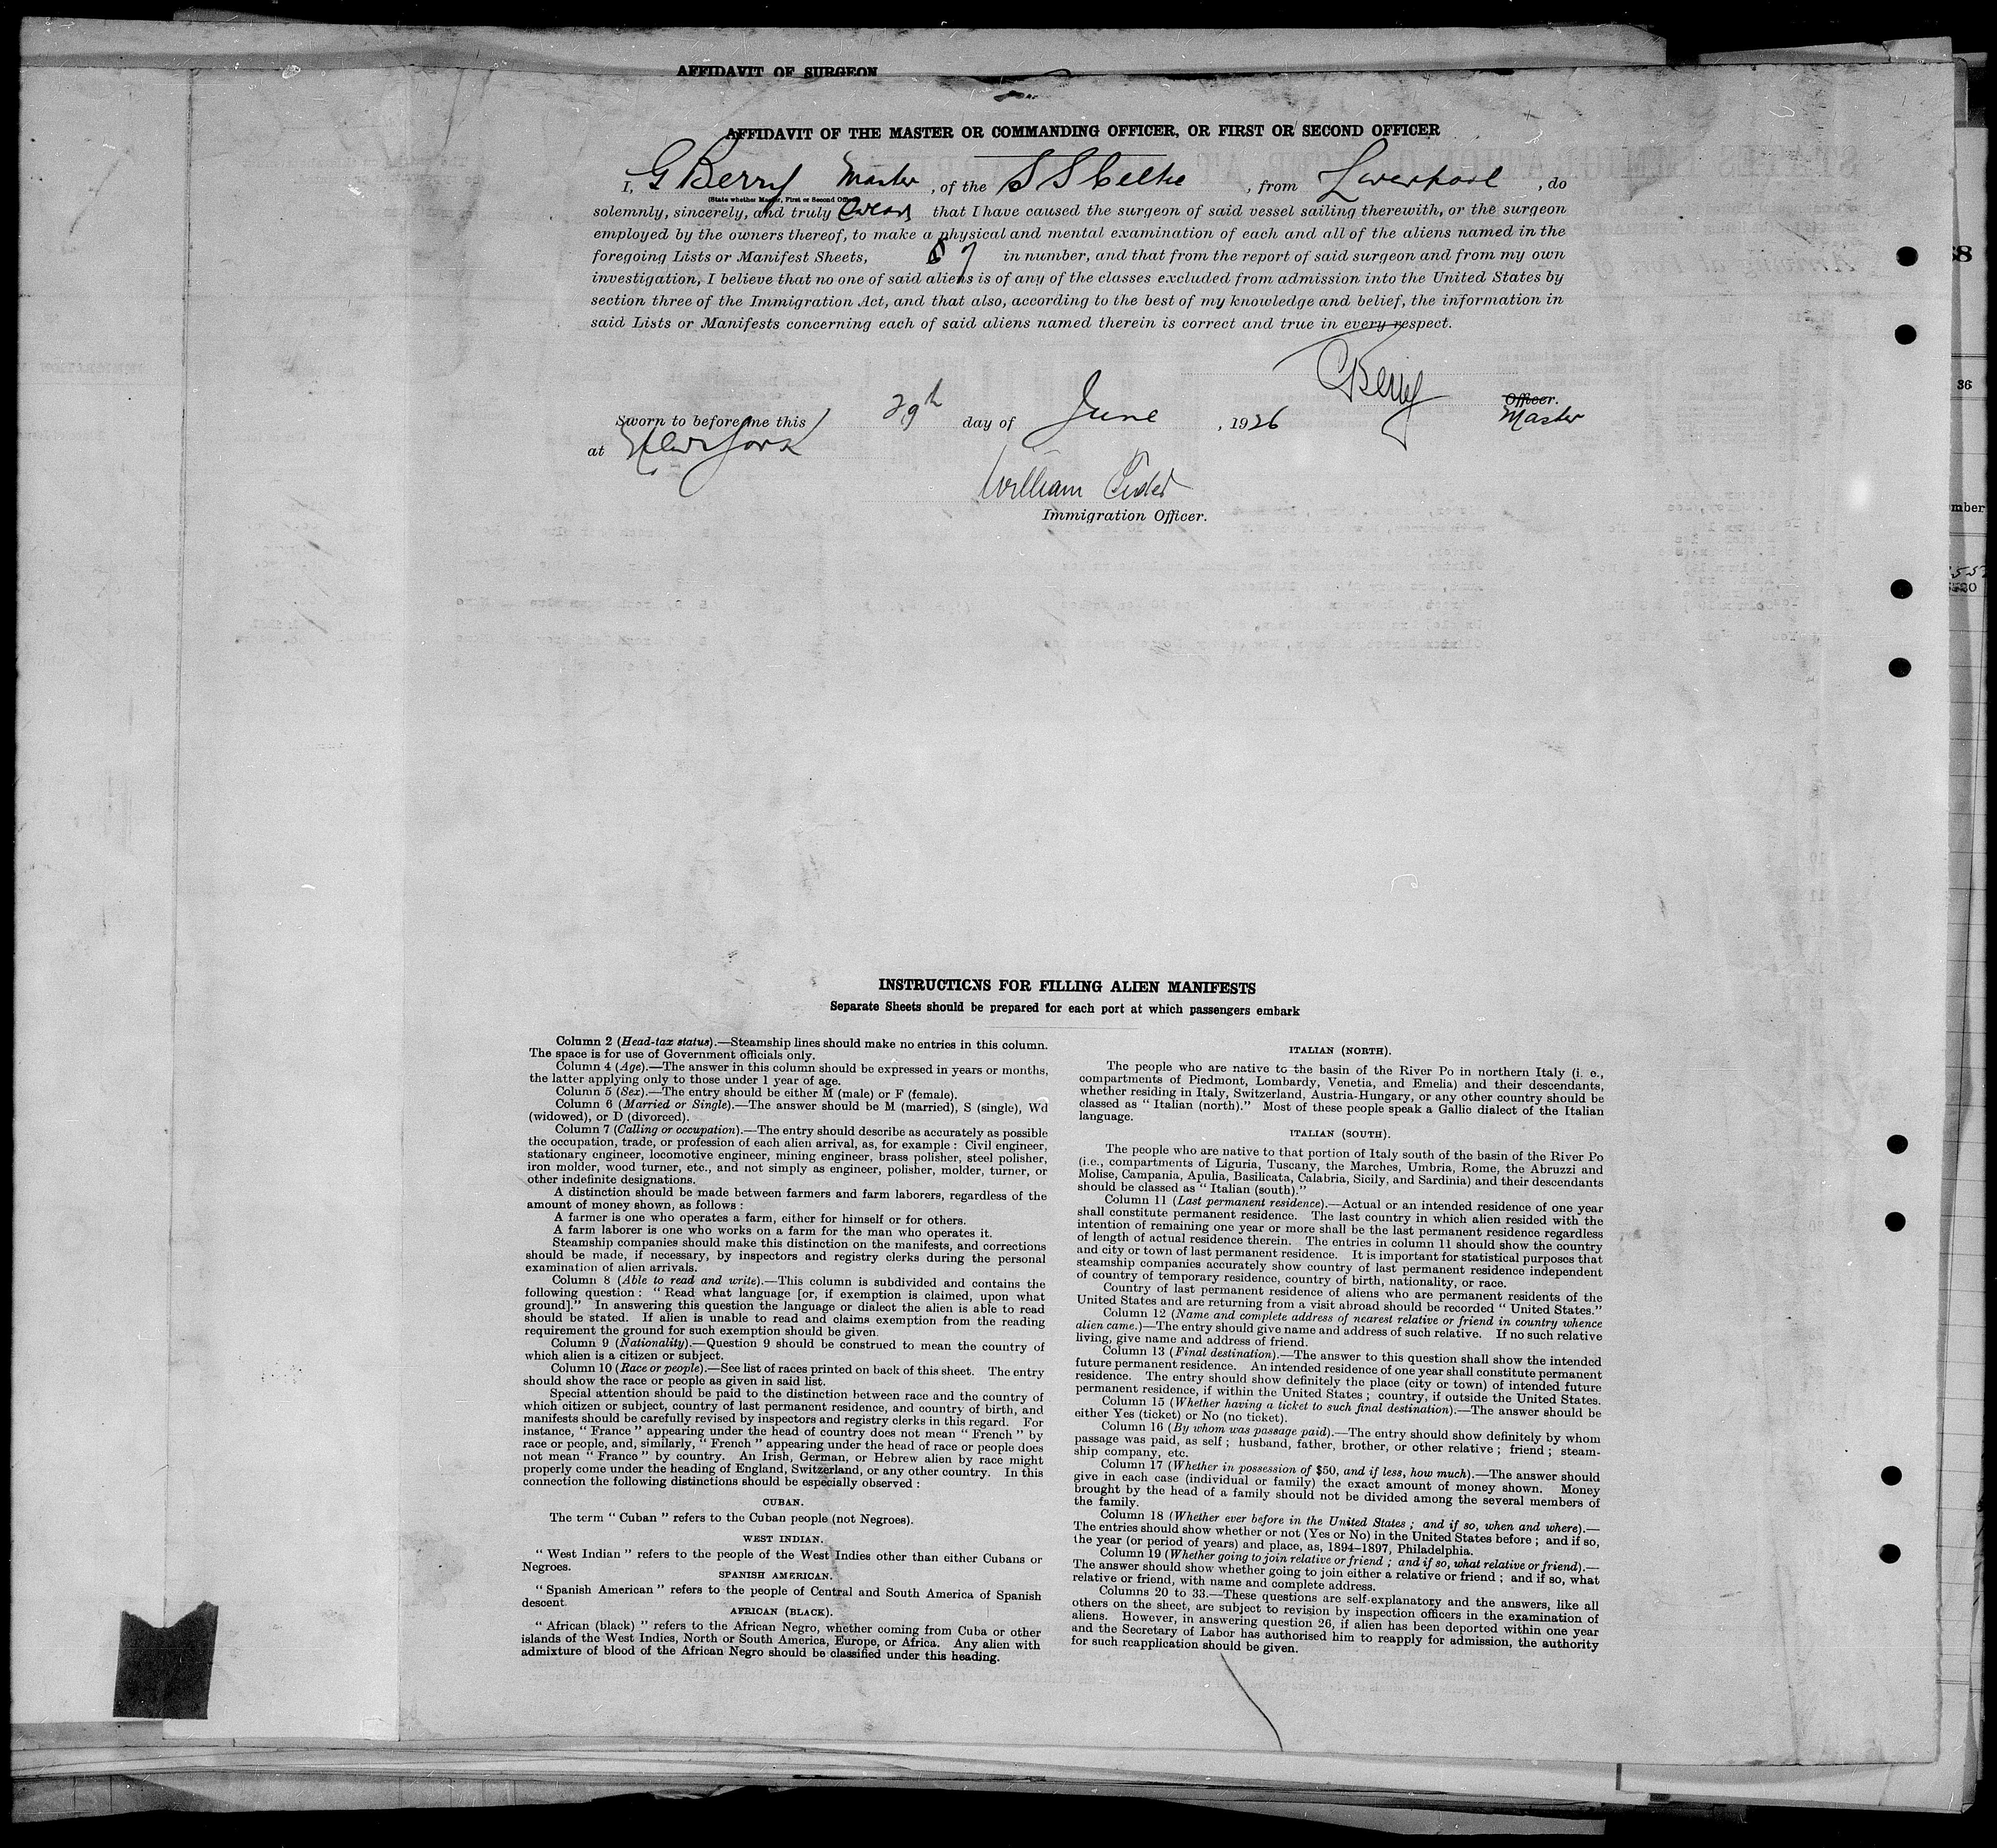 AFFIDAVIT OF SURGEON
AFFIDAVIT OF THE MASTER OR COMMANDING OFFICER, OR FIRST OR SECOND OFFICER
I, G Berry Master, of the S S Celtic, from Liverpool, do
(State whether Master, First or Second Officer)
solemnly, sincerely, and truly swear that I have caused the surgeon of said vessel sailing therewith, or the surgeon
employed by the owners thereof, to make a physical and mental examination of each and all of the aliens named in the
foregoing Lists or Manifest Sheets, 7 in number, and that from the report of said surgeon and from my own
investigation, I believe that no one of said aliens is of any of the classes excluded from admission into the United States by
section three of the Immigration Act, and that also, according to the best of my knowledge and belief, the information in
said Lists or Manifests concerning each of said aliens named therein is correct and true in every respect.
G Berry
Officer.
Master
Sworn to before me this 29th day of June, 1926
at New York
William
Immigration Officer.
68
36
mber
INSTRUCTIONS FOR FILLING ALIEN MANIFESTS
Separate Sheets should be prepared for each port at which passengers embark
Column 2 (Head-tax status).—Steamship lines should make no entries in this column.
The space is for use of Government officials only.
Column 4 (Age).—The answer in this column should be expressed in years or months,
the latter applying only to those under 1 year of age.
Column 5 (Sex).—The entry should be either M (male) or F (female).
Column 6 (Married or Single).—The answer should be M (married), S (single), Wd
(widowed), or D (divorced).
Column 7 (Calling or occupation).—The entry should describe as accurately as possible
the occupation, trade, or profession of each alien arrival, as, for example : Civil engineer,
stationary engineer, locomotive engineer, mining engineer, brass polisher, steel polisher,
iron molder, wood turner, etc., and not simply as engineer, polisher, molder, turner, or
other indefinite designations.
A distinction should be made between farmers and farm laborers, regardless of the
amount of money shown, as follows :
A farmer is one who operates a farm, either for himself or for others.
A farm laborer is one who works on a farm for the man who operates it.
Steamship companies should make this distinction on the manifests, and corrections
should be made, if necessary, by inspectors and registry clerks during the personal
examination of alien arrivals.
Column 8 (Able to read and write).—This column is subdivided and contains the
following question : " Read what language [or, if exemption is claimed, upon what
ground]." In answering this question the language or dialect the alien is able to read
should be stated. If alien is unable to read and claims exemption from the reading
requirement the ground for such exemption should be given.
Column 9 (Nationality).—Question 9 should be construed to mean the country of
which alien is a citizen or subject.
Column 10 (Race or people).—See list of races printed on back of this sheet. The entry
should show the race or people as given in said list.
Special attention should be paid to the distinction between race and the country of
which citizen or subject, country of last permanent residence, and country of birth, and
manifests should be carefully revised by inspectors and registry clerks in this regard. For
instance, " France " appearing under the head of country does not mean " French " by
race or people, and, similarly, " French " appearing under the head of race or people does
not mean " France " by country. An Irish, German, or Hebrew alien by race might
properly come under the heading of England, Switzerland, or any other country. In this
connection the following distinctions should be especially observed :
CUBAN.
The term " Cuban " refers to the Cuban people (not Negroes).
WEST INDIAN.
" West Indian " refers to the people of the West Indies other than either Cubans or
Negroes.
SPANISH AMERICAN.
" Spanish American " refers to the people of Central and South America of Spanish
descent.
AFRICAN (BLACK).
" African (black) " refers to the African Negro, whether coming from Cuba or other
islands of the West Indies, North or South America, Europe, or Africa. Any alien with
admixture of blood of the African Negro should be classified under this heading.
ITALIAN (NORTH).
The people who are native to the basin of the River Po in northern Italy (i. e.,
compartments of Piedmont, Lombardy, Venetia, and Emelia) and their descendants,
whether residing in Italy, Switzerland, Austria-Hungary, or any other country should be
classed as " Italian (north)." Most of these people speak a Gallic dialect of the Italian
language.
ITALIAN (SOUTH).
The people who are native to that portion of Italy south of the basin of the River Po
(i.e., compartments of Liguria, Tuscany, the Marches, Umbria, Rome, the Abruzzi and
Molise, Campania, Apulia, Basilicata, Calabria, Sicily, and Sardinia) and their descendants
should be classed as " Italian (south)."
Column 11 (Last permanent residence).—Actual or an intended residence of one year
shall constitute permanent residence. The last country in which alien resided with the
intention of remaining one year or more shall be the last permanent residence regardless
of length of actual residence therein. The entries in column 11 should show the country
and city or town of last permanent residence. It is important for statistical purposes that
steamship companies accurately show country of last permanent residence independent
of country of temporary residence, country of birth, nationality, or race.
Country of last permanent residence of aliens who are permanent residents of the
United States and are returning from a visit abroad should be recorded " United States."
Column 12 (Name and complete address of nearest relative or friend in country whence
alien came.)—The entry should give name and address of such relative. If no such relative
living, give name and address of friend.
Column 13 (Final destination).—The answer to this question shall show the intended
future permanent residence. An intended residence of one year shall constitute permanent
residence. The entry should show definitely the place (city or town) of intended future
permanent residence, if within the United States ; country, if outside the United States.
Column 15 (Whether having a ticket to such final destination).—The answer should be
either Yes (ticket) or No (no ticket).
Column 16 (By whom was passage paid).—The entry should show definitely by whom
passage was paid, as self ; husband, father, brother, or other relative ; friend ; steam-
ship company, etc.
Column 17 (Whether in possession of $50, and if less, how much).—The answer should
give in each case (individual or family) the exact amount of money shown. Money
brought by the head of a family should not be divided among the several members of
the family.
Column 18 (Whether ever before in the United States ; and if so, when and where).—
The entries should show whether or not (Yes or No) in the United States before ; and if so,
the year (or period of years) and place, as, 1894–1897, Philadelphia.
Column 19 (Whether going to join relative or friend ; and if so, what relative or friend).—
The answer should show whether going to join either a relative or friend ; and if so, what
relative or friend, with name and complete address.
Columns 20 to 33.—These questions are self-explanatory and the answers, like all
others on the sheet, are subject to revision by inspection officers in the examination of
aliens. However, in answering question 26, if alien has been deported within one year
and the Secretary of Labor has authorised him to reapply for admission, the authority
for such reapplication should be given.